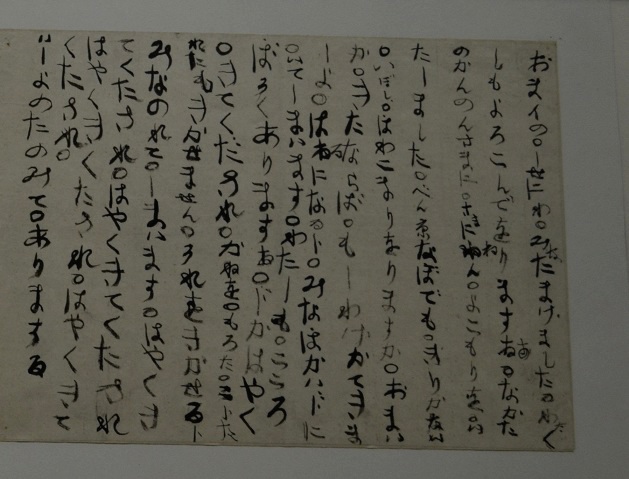 おまイの。しせにわ。みなたまけました。わたく
しもよろこんでをりまする。なかた
のかんのんさまに。さまにねん。よこもりを。い
たしました。べん京なぼでも。きりかない
。いぼし。ほわこまりをりますか。おまい
か。きたならば。もしわけかてきま
しよ。はるになるト。みなほかいドに
。いてしまいます。わたしも。こころ
ぼそくありまする。ドカはやく
。きてくだされ。かねを。もろた。こトた
れにもきかせません。それをきかせるト
みなのれて。しまいます。はやくき
てくたされ。はやくきてくたされ
はやくきてくたされ。はやくきて
くたされ。
いしよのたのみて。ありまする